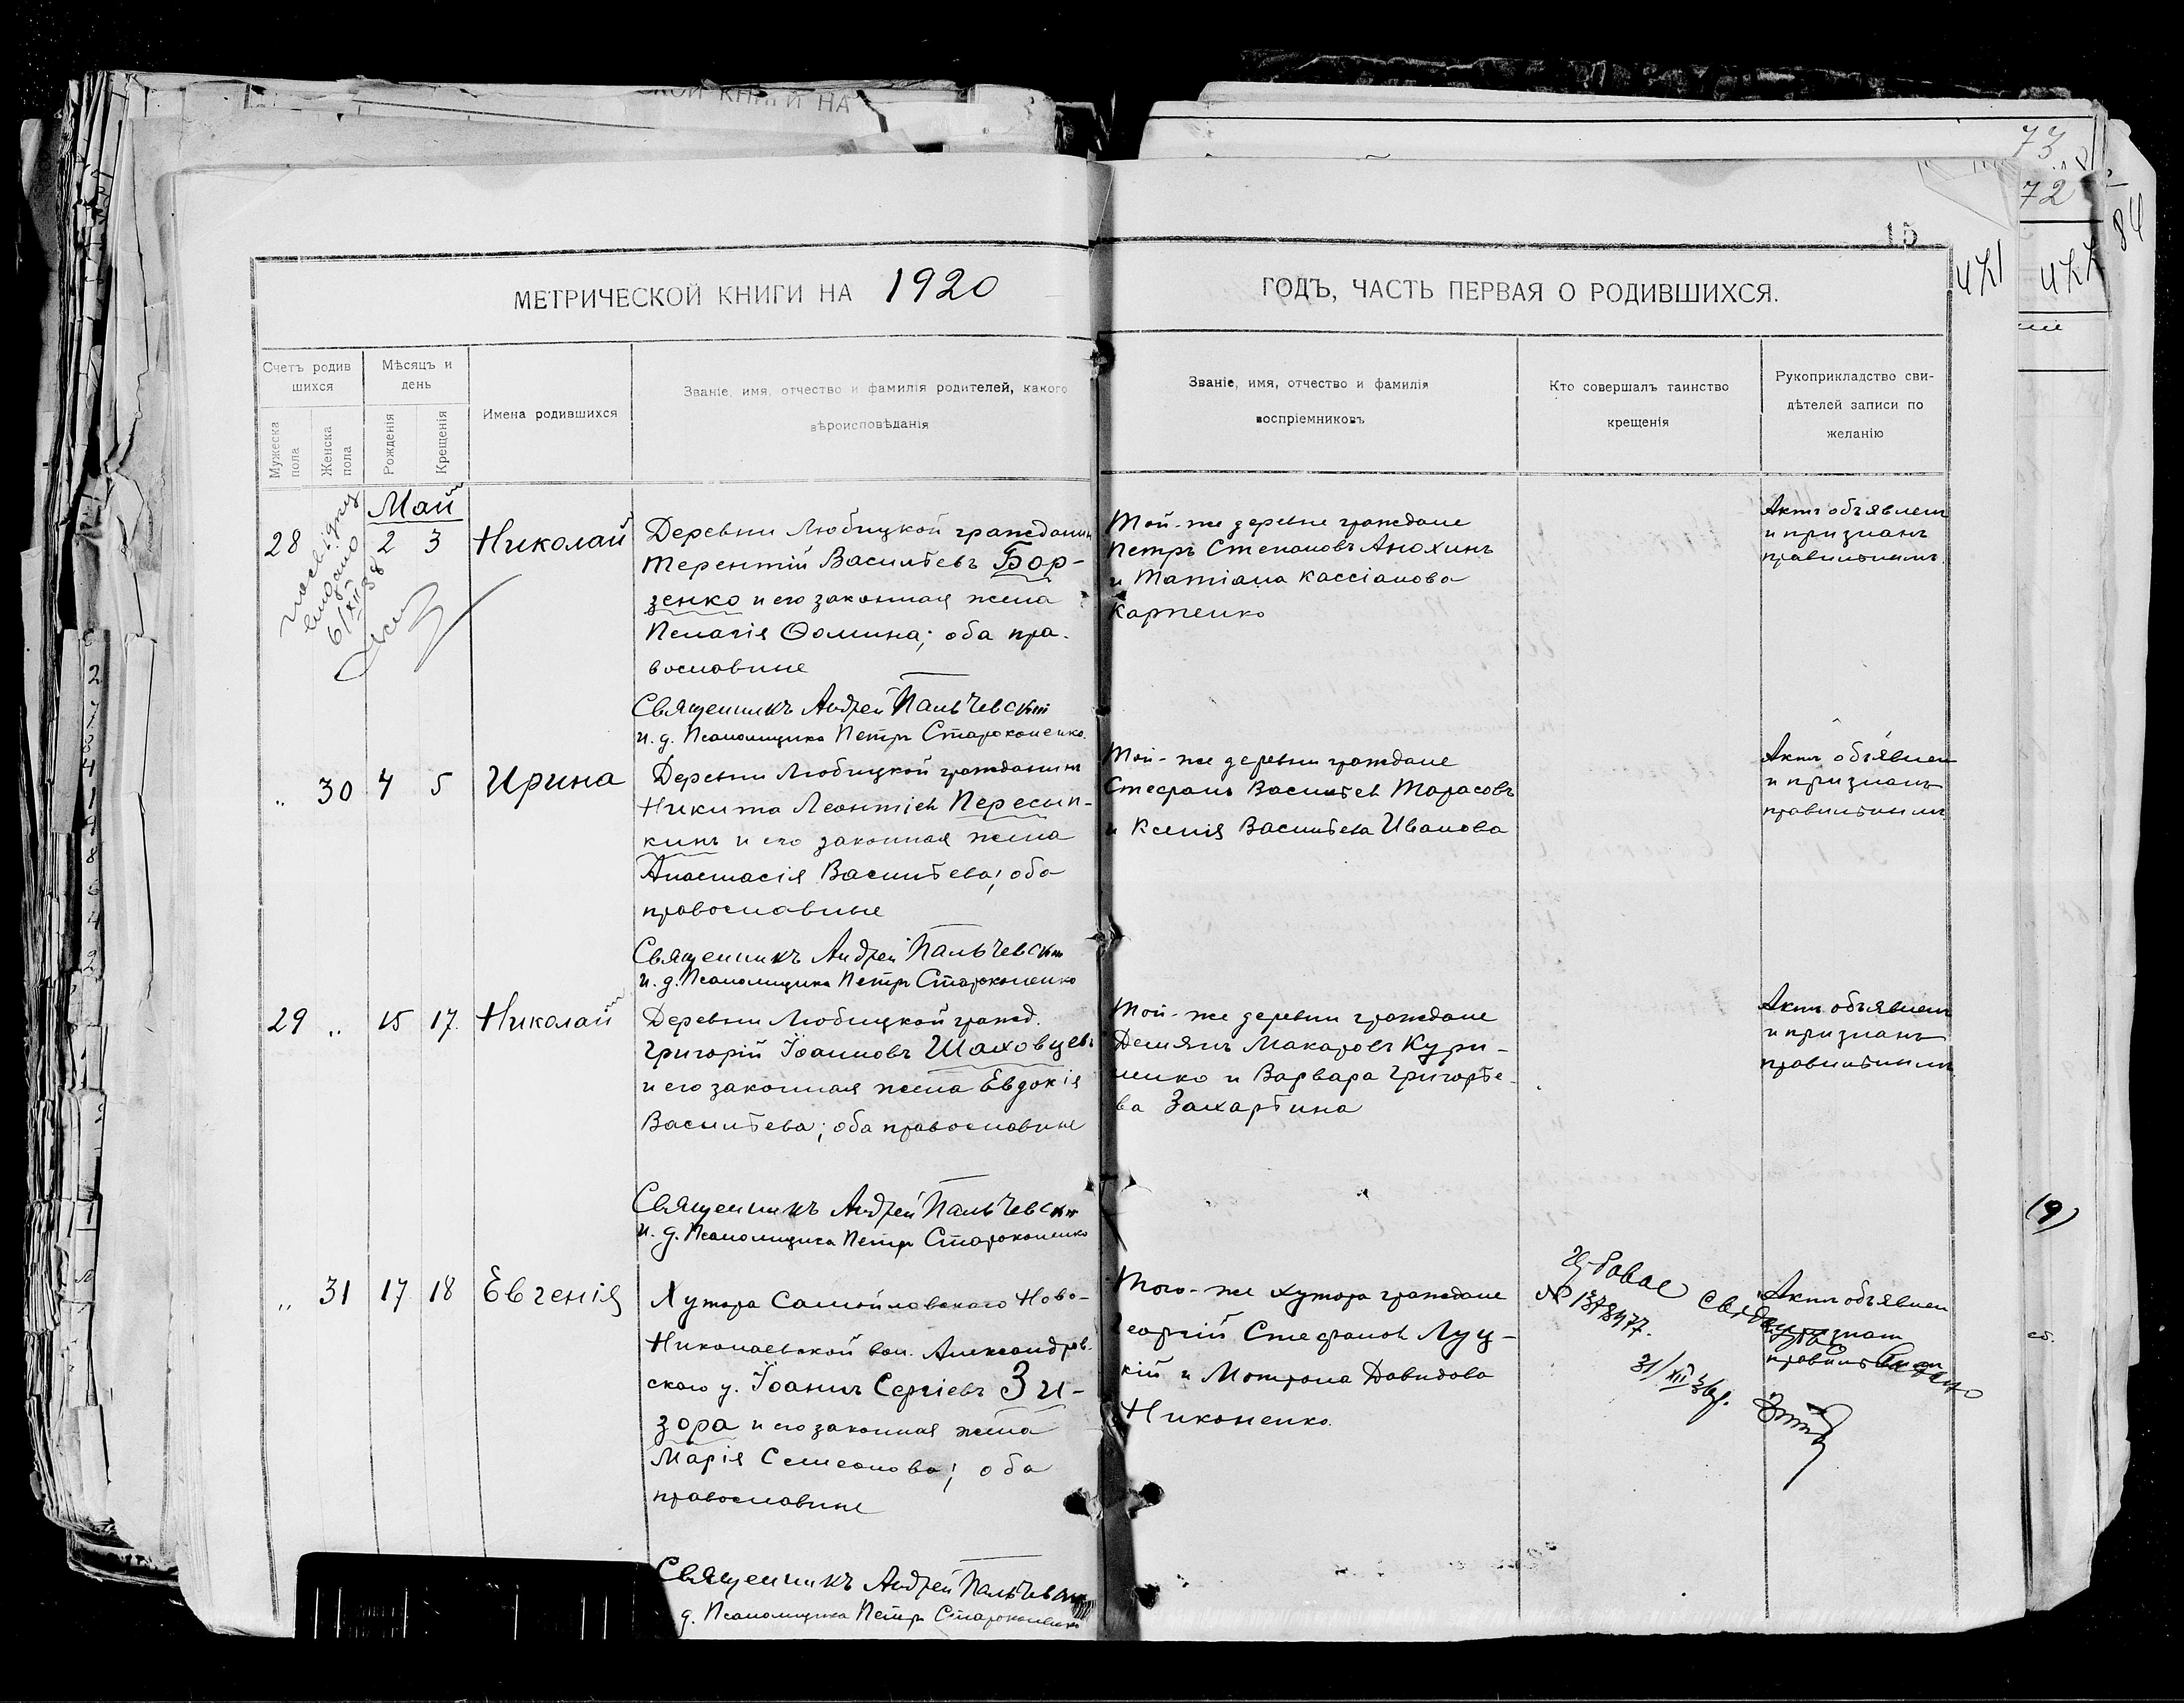 КОЙ КНИГИ НА
73
72
84
15
471
МЕТРИЧЕСКОЙ КНИГИ НА 1920
ГОДЪ, ЧАСТЬ ПЕРВАЯ О РОДИВШИХСЯ.
Счетъ родив
шихся
Мужеска
пола
Женска
пола
Мѣсяцъ и
день
Рожденія
Крещенія
Имена родившихся
Званіе, имя, отчество и фамилія родителей, какого
вѣроисповѣданія
Званіе, имя, отчество и фамилія
воспріемниковъ
Кто совершалъ таинство
крещенія
Рукоприкладство сви-
дѣтелей записи по
желанію
Май
28
2 3
Николай
6/XII 38
Деревни Любицкой гражданин
Терентій Васильевъ Бор-
зенко и его законная жена
Пелагія Ѳомина; оба пра-
вославные
Священникъ Андрей Пальчевскій
и. д. Псаломщика Петръ Староконенко
Той-же деревни граждане
Петръ Степановъ Анохинъ
и Татіана Кассіанова
Карпенко
Актъ объявленъ
и признанъ
правильнымъ.
" 30 4 5
Ирина
Деревни Любицкой гражданинъ
Никита Леонтіев Пересып-
кинъ и его законная жена
Анастасія Васильева; оба
православные
Священникъ Андрей Пальчевскій
и. д. Псаломщика Петръ Староконенко
Той-же деревни граждане
Стефанъ Васильев Тарасовъ
и Ксенія Васильева Иванова
Актъ объявлен
и признанъ
правильнымъ
29 " 15 17
Николай
Деревни Любицкой гражд.
Григорій Іоанновъ Шаховцевъ
и его законная жена Евдокія
Васильева; оба православные
Священникъ Андрей Пальчевскій
и. д. Псаломщика Петръ Староконенко
Той-же деревни граждане
Демянъ Макаровъ Кури-
ленко и Варвара Григорье-
ва Захарьина
Актъ объявленъ
и признанъ
правильнымъ
" 31 17 18
Евгенія
Хутора Самойловского Ново-
Николаевской вол. Александров-
ского у. Іоаннъ Сергіевъ Зи-
зора и его законная жена
Марія Семеонова; оба
православные
Священникъ Андрей Пальчевскій
д. Псаломщика Петръ Староконенко
Того-же хутора граждане
Георгій Стефанов Луц-
кій и Мотрона Давидова
Никоненко.
№ 1378477.
Актъ объявлен
признан
(9)